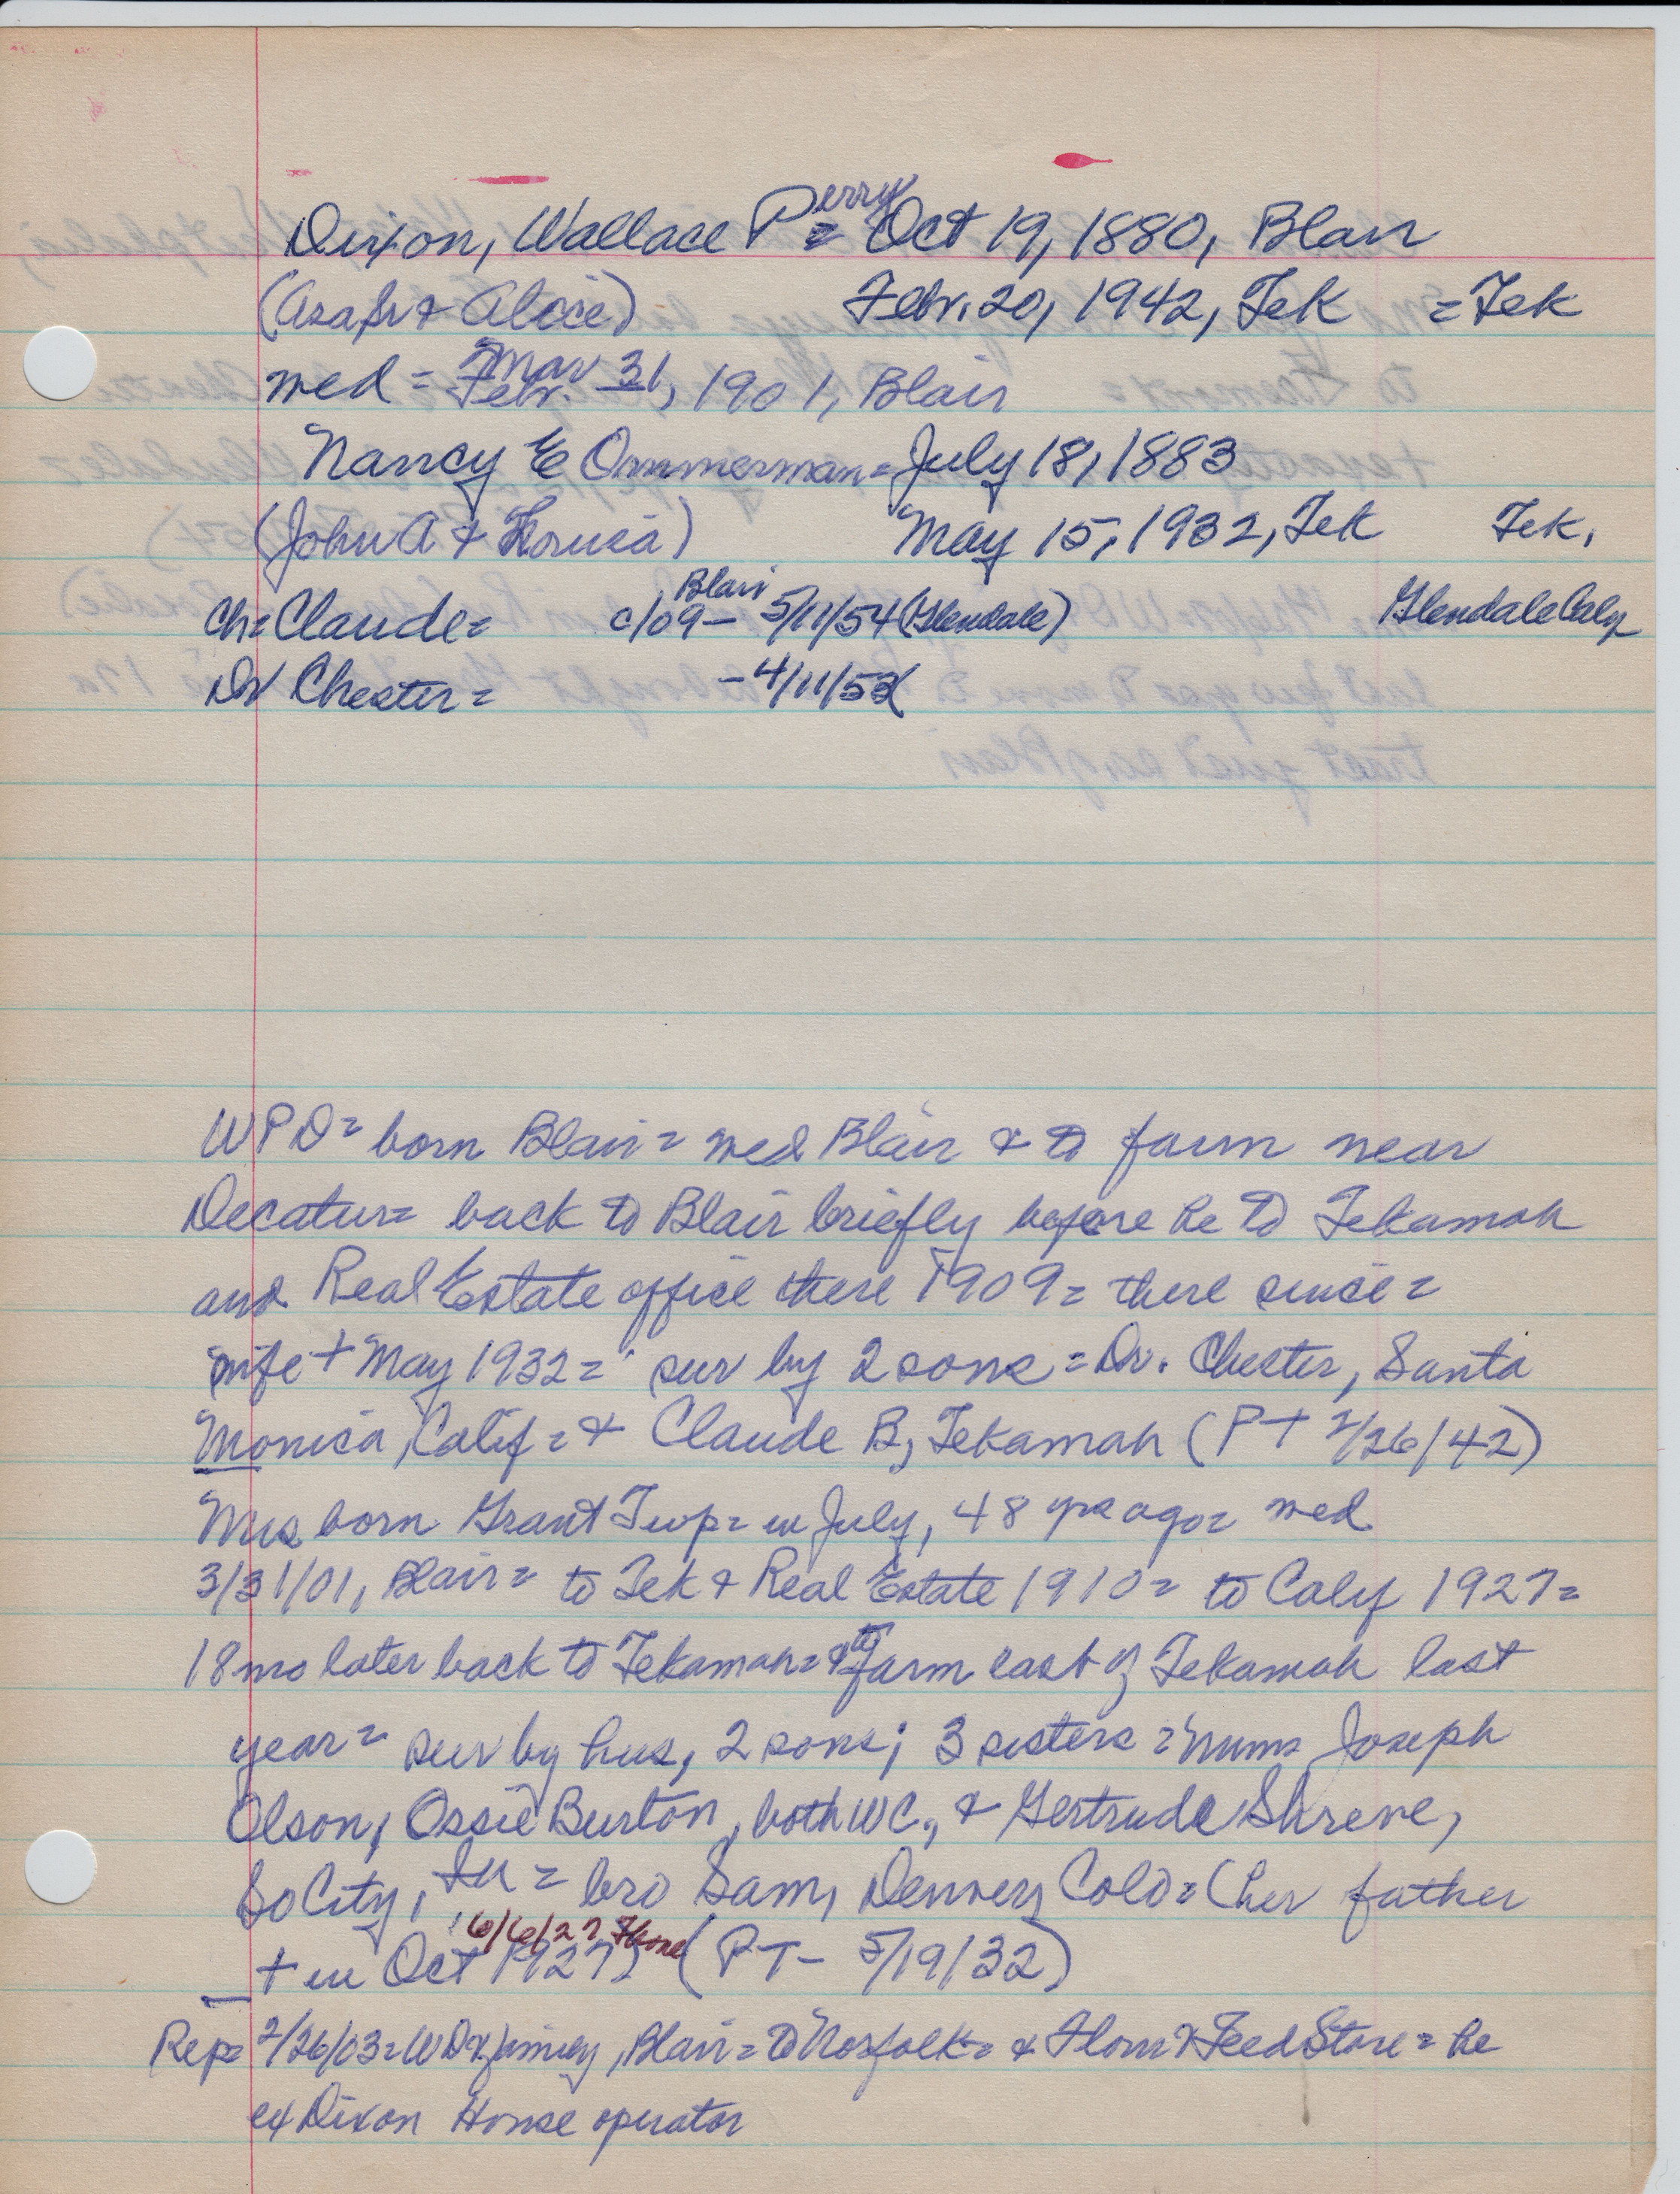 Dixon, Wallace Perry = Oct 19, 1880, Blair
(Asaph & Alice) Febr. 20, 1942, Tek = Tek
med = Febr. Mar 31, 1901, Blair
Nancy E Ommerman = July 18, 1883
(John A & Louisa) May 15, 1932, Tek Tek.
Ch = Claude = c/09 - Blair 5/11/54 (Glendale) Glendale Calif
Dr Chester = - 4/11/53
WPD = born Blair = med Blair & to farm near
Decatur = back to Blair briefly before he to Tekamah
and Real Estate office there 1909 = there since =
wife + May 1932 = sur by 2 sons = Dr. Chester, Santa
Monica, Calif = & Claude B, Tekamah (PT 2/26/42)
Mrs born Grant Twp = in July, 48 yrs ago = med
3/31/01, Blair = to Tek & Real Estate 1910 = to Calif 1927 =
18 mo later back to Tekamah = & to farm east of Tekamah last
year = sur by hus, 2 sons; 3 sisters = Mmes Joseph
Olson, Ossie Burton, both WC, & Gertrude Shreve,
So City, = bro Sam, Denver, Colo = (her father
6/6/27
+ in Oct 1927) (PT - 5/19/32)
Rep = 2/26/03 = WD & family, Blair = to Norfolk = & Flour & Feed Store = he
ex Dixon House operator